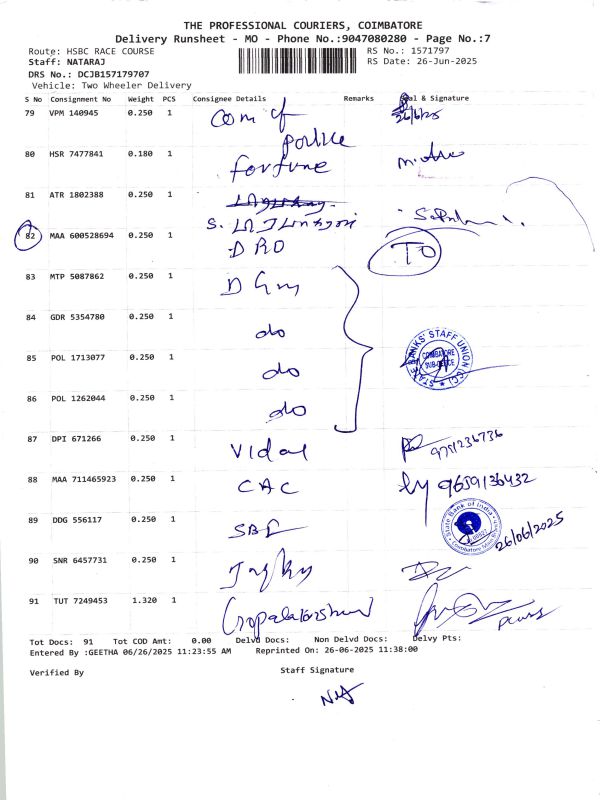 THE PROFESSIONAL COURIERS, COIMBATORE
Delivery Runsheet - MO - Phone No.:9047080280 - Page No.:7
Route: HSBC RACE COURSE RS No.: 1571797
Staff: NATARAJ RS Date: 26-Jun-2025
DRS No.: DCJB157179707
Vehicle: Two Wheeler Delivery
S No Consignment No Weight PCS Consignee Details Remarks & Signature
79 VPM 140945 0.250 1 com of police 26/6/25
80 HSR 7477841 0.180 1 fortune
81 ATR 1802388 0.250 1
82 MAA 600528694 0.250 1 DRO TO
83 MTP 5087862 0.250 1 DGM
84 GDR 5354780 0.250 1 do
85 POL 1713077 0.250 1 do
STATE BANKS' STAFF UNION (CC)
COIMBATORE
SUB-OFFICE
86 POL 1262044 0.250 1 do
87 DPI 671266 0.250 1 Vidal 9751236736
88 MAA 711465923 0.250 1 CAC 9659136432
89 DDG 556117 0.250 1 SBI 26/06/2025
State Bank of India
90 SNR 6457731 0.250 1
91 TUT 7249453 1.320 1
Tot Docs: 91 Tot COD Amt: 0.00 Delvd Docs: Non Delvd Docs: Delvy Pts:
Entered By :GEETHA 06/26/2025 11:23:55 AM Reprinted On: 26-06-2025 11:38:00
Verified By Staff Signature